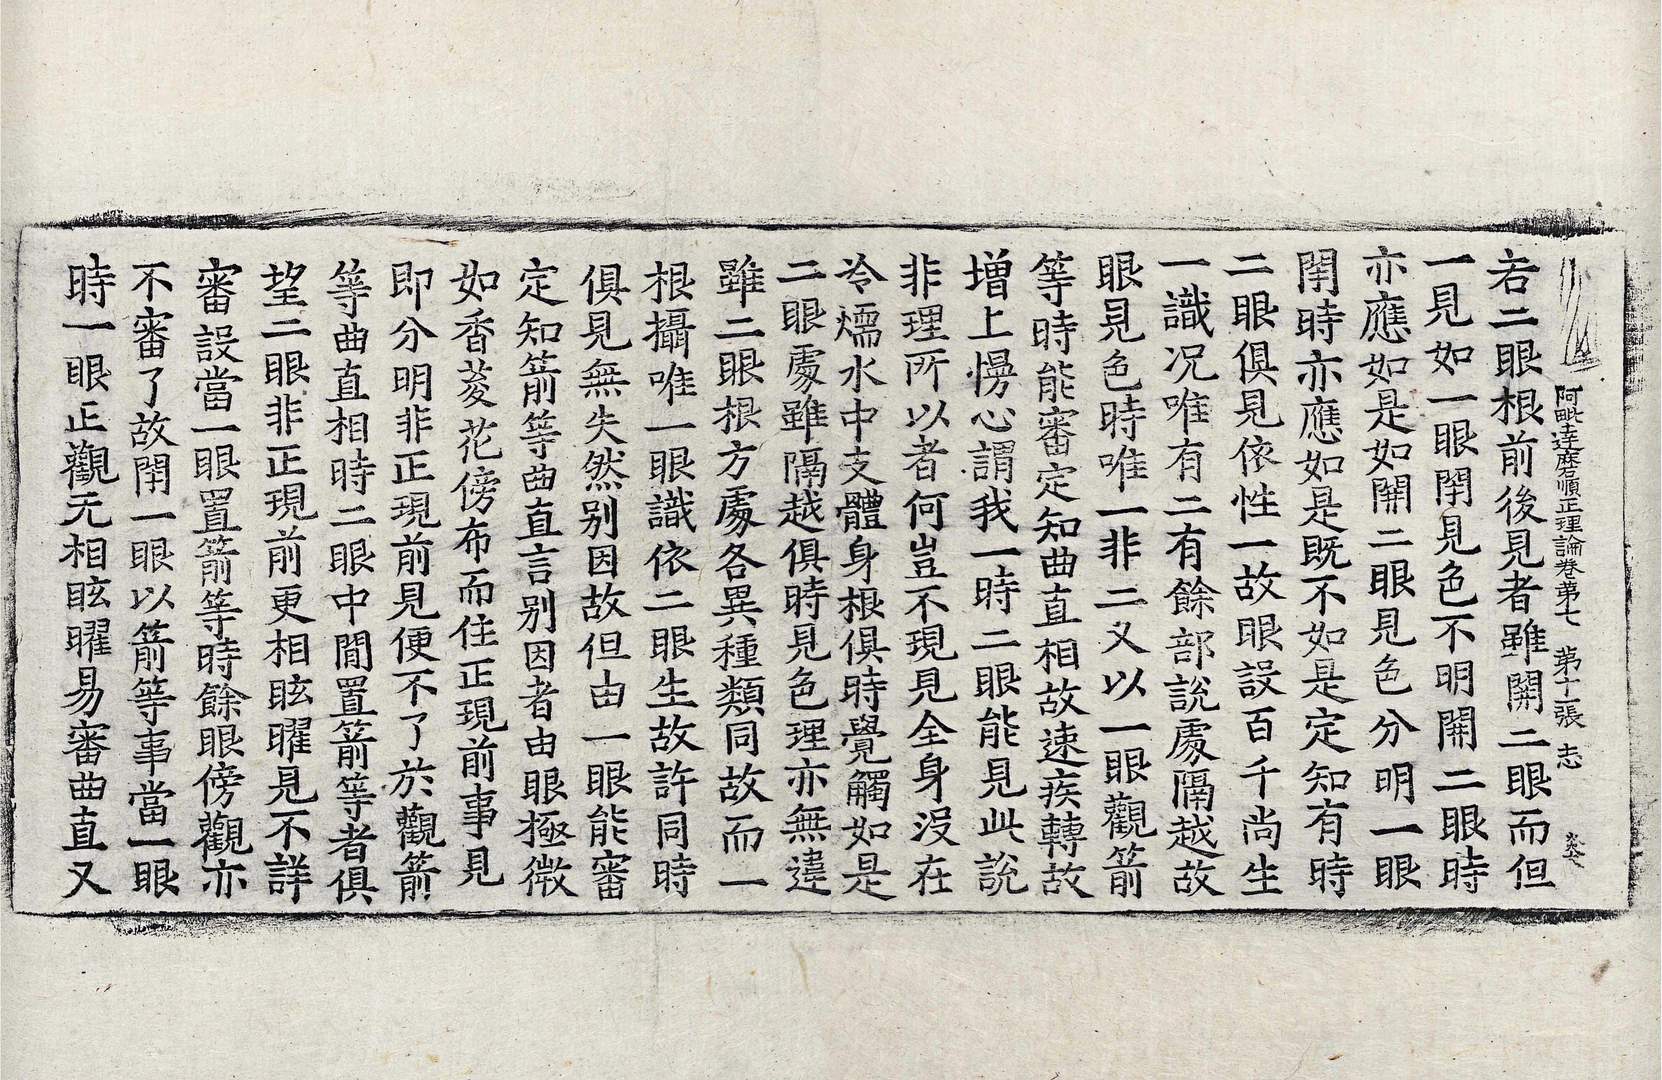 阿毗達磨順正理論卷第七　第十二張　志
若二眼根前後見者雖開二眼而但
一見如一眼閇見色不明開二眼時
亦應如是如開二眼見色分明一眼
閇時亦應如是既不如是定知有時
二眼俱見依性一故眼設百千尚生
一識况唯有二有餘部說處隔越故
眼見色時唯一非二又以一眼觀箭
等時能審定知曲直相故速疾轉故
增上慢心謂我一時二眼能見此說
非理所以者何豈不現見全身没在
冷煗水中支體身根俱時覺觸如是
二眼處雖隔越俱時見色理亦無違
雖二眼根方處各異種類同故而一
根攝唯一眼識依二眼生故許同時
俱見無失然别因故但由一眼能審
定知箭等曲直言别因者由眼極微
如香荾花傍布而住正現前事見
即分明非正現前見便不了於觀箭
等曲直相時二眼中間置箭等者俱
望二眼非正現前更相眩曜見不詳
審設當一眼置箭等時餘眼傍觀亦
不審了故閇一眼以箭等事當一眼
時一眼正觀无相眩曜易審曲直又